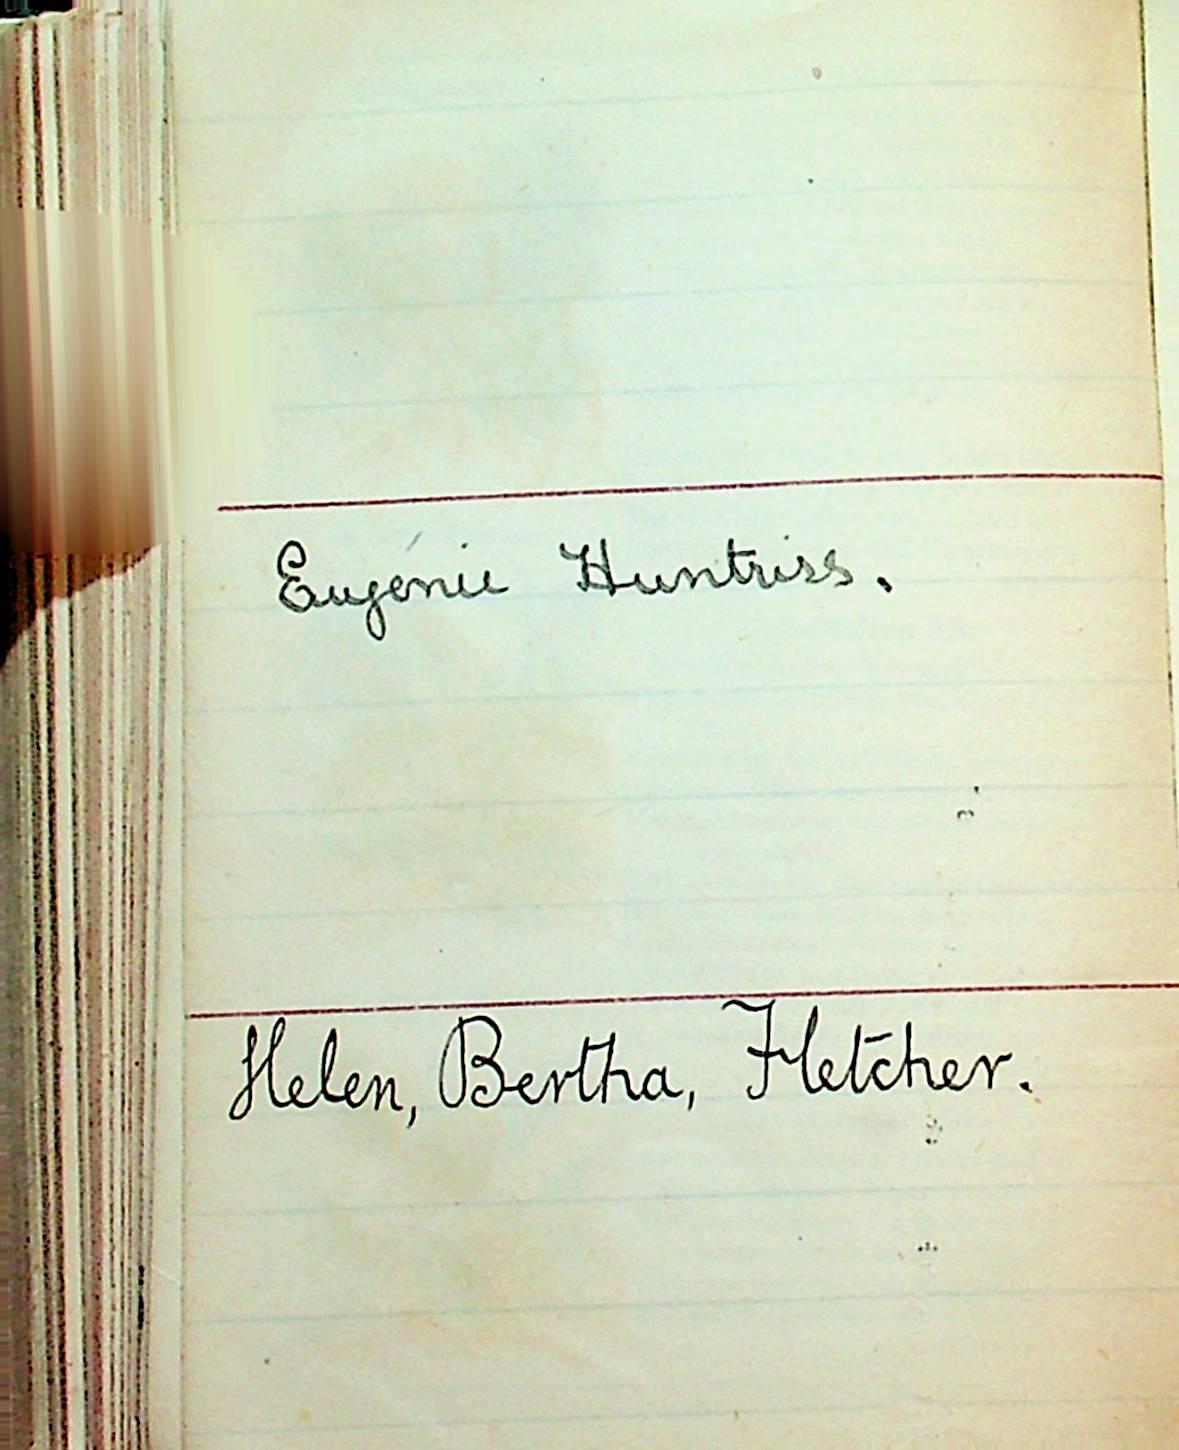 Eugénie Huntriss.
Helen, Bertha, Fletcher.